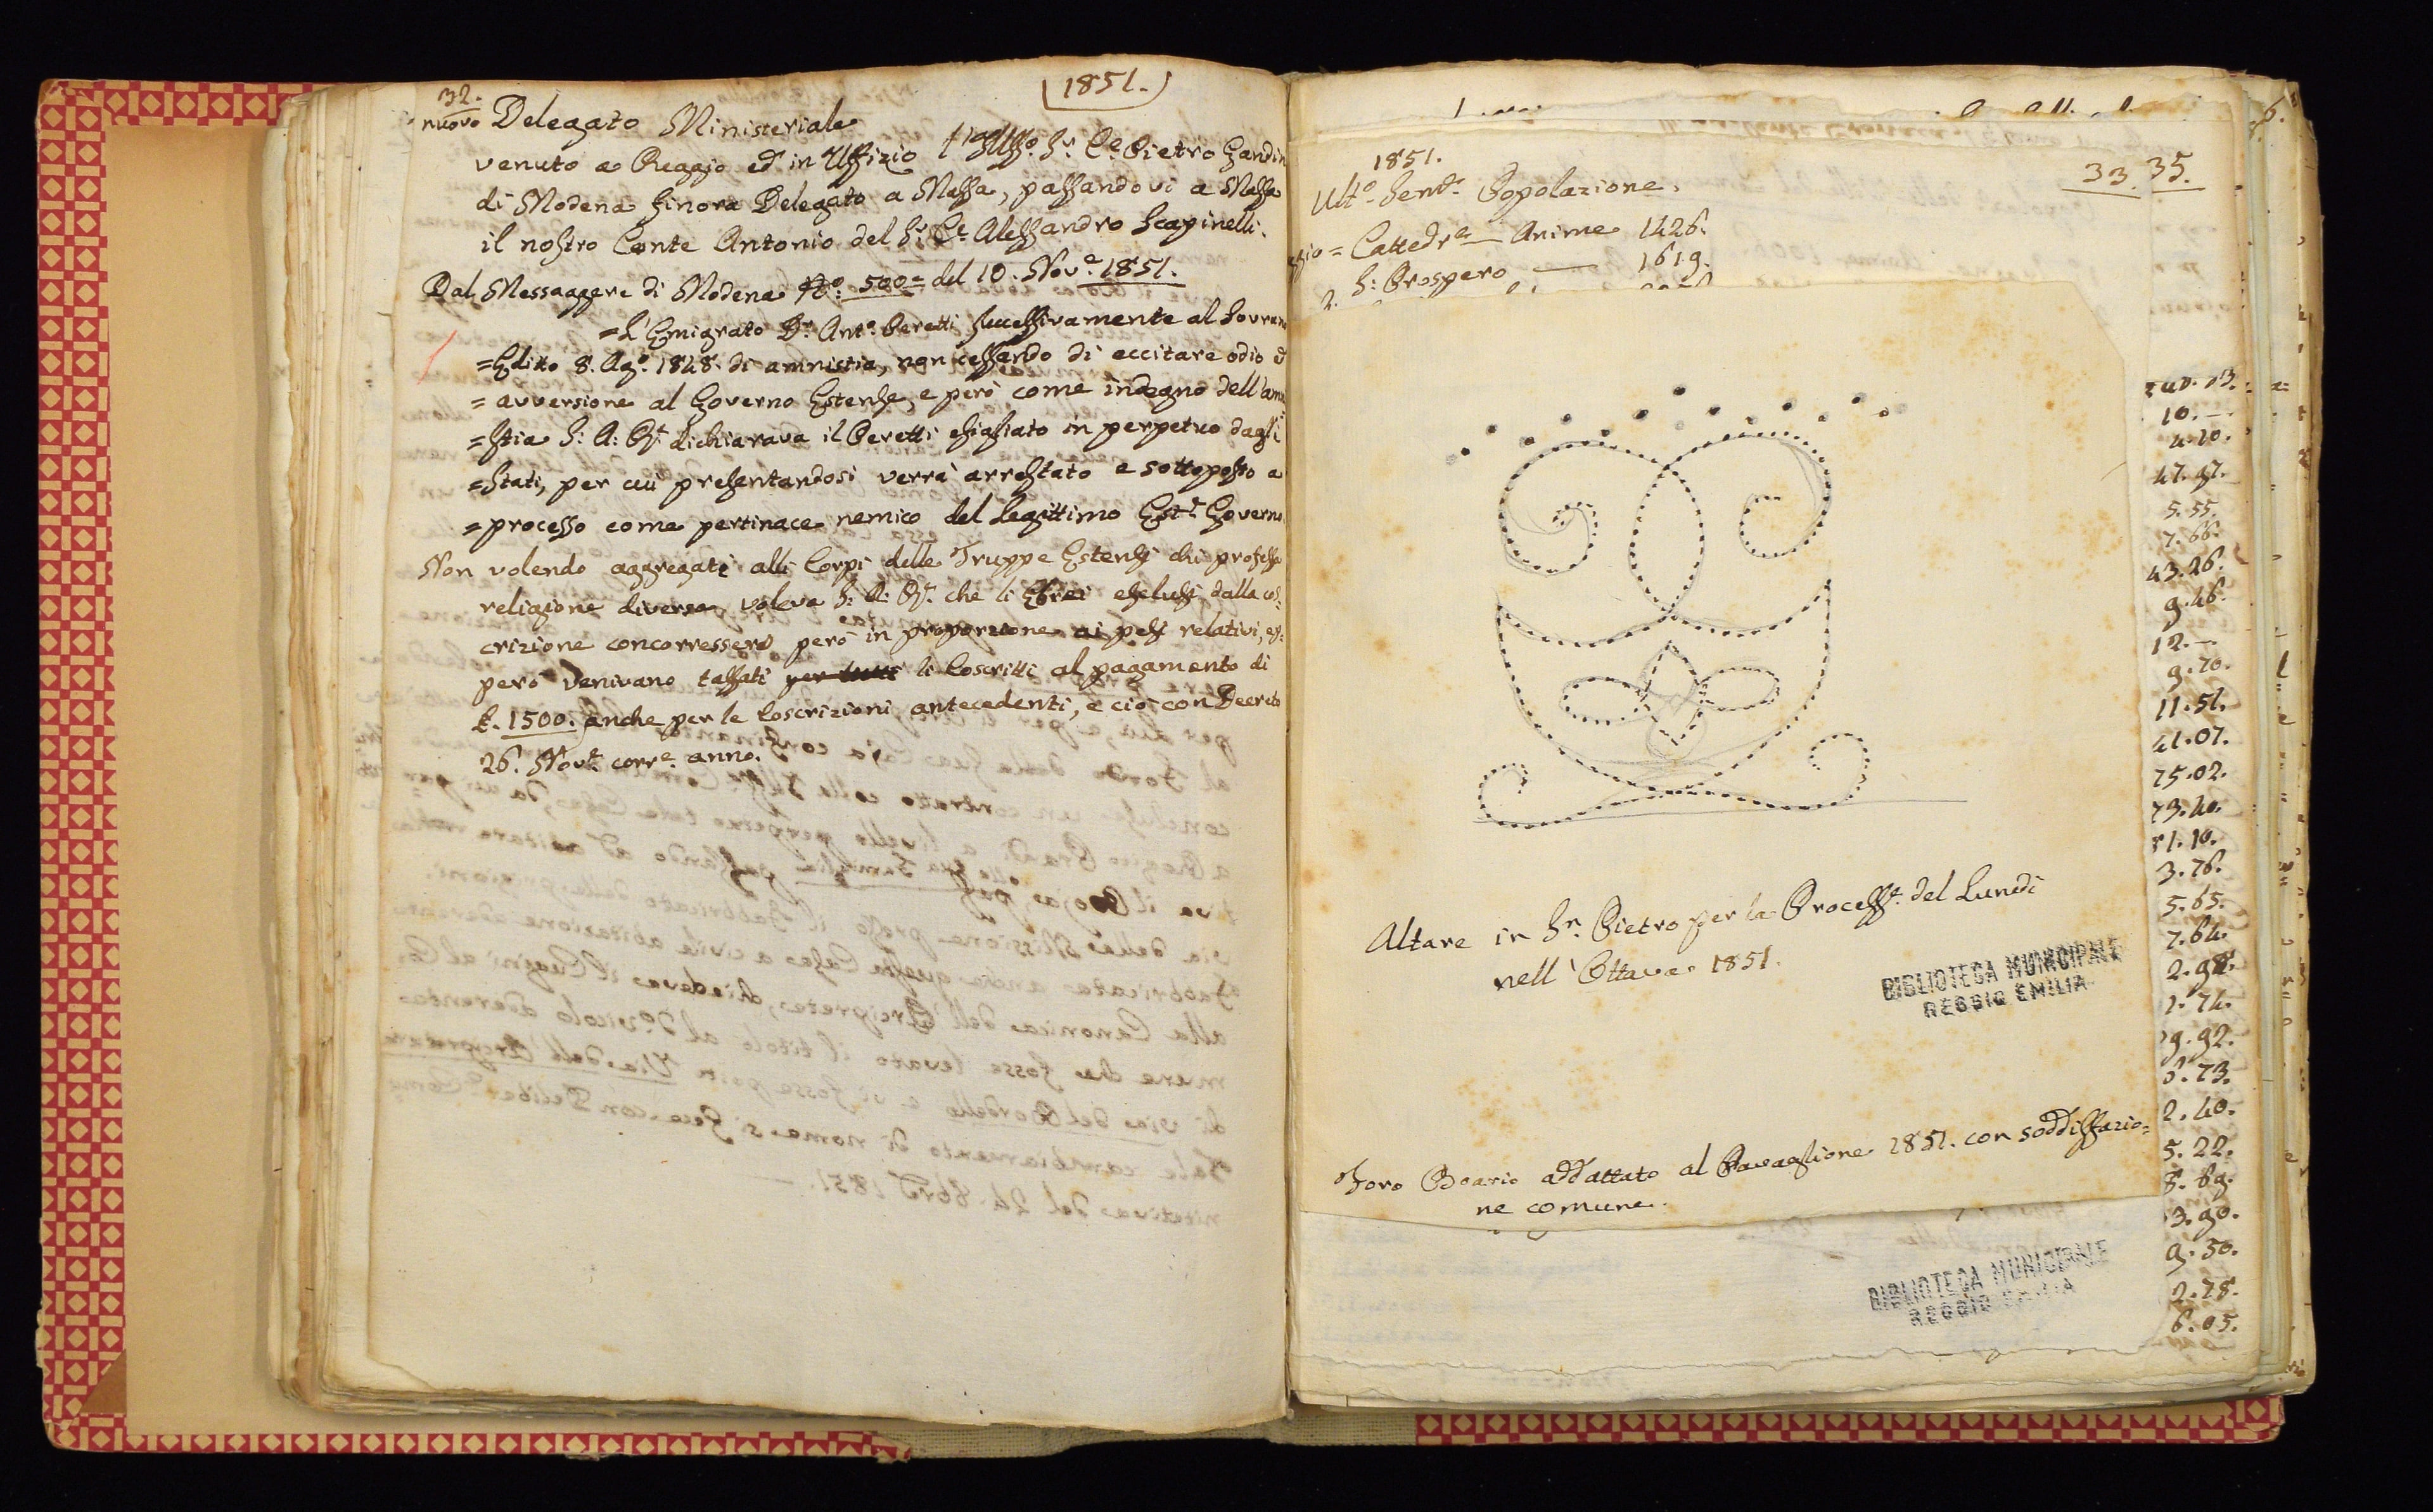 32.
(1851.)
nuovo Delegato Ministeriale
venuto a Reggio ed in Uffizio l'Illmo. Sr. Ce. Pietro Gandin
di Modena finora Delegato a Massa, passandovi a Massa
il nostro Conte Antonio del Sr. Ce. Alessandro Scapinelli.
Dal Messaggere di Modena No. 500= del 10. Nove. 1851.
=L'Emigrato Dr. Anto. Peretti successivamente al Sovrano
=Editto 8. Ago. 1848. di amnistia, non cessando di eccitare odio ed
= avversione al Governo Estense, e però come indegno dell'amni=
=stia S: A: R: dichiarava il Peretti esigliato in perpetuo dagli
=Stati, per cui presentandosi verrà arrestato e sottoposto a
=processo come pertinace nemico del Legittimo Este. Governo.
Non volendo aggregati alli Corpi delle Truppe Estensi chi professa
religione diversa, voleva S: A: R: che li Ebrei esclusi dalla cos=
crizione concorressero però in proporzione ai pesi relativi, e
però venivano tassati per tutti li Coscritti al pagamento di
£. 1500. anche per le Coscrizioni antecedenti, e ciò con Decreto
26. Nove. corre. anno.
1851.
33. 35.
Popolazione.
= Cattedre. — Anime 1426.
2. S: Prospero — 1619.
10.—
4.10.
47.97.
5.55.
7.66.
43.26.
9.46.
12.—
9.70.
11.51.
41.07.
75.02.
73.40.
51.10.
3.76.
5.65.
7.64.
2.98.
1.74.
9.92.
6.73.
2.40.
5.22.
8.89.
3.90.
9.50.
2.78.
6.05.
Altare in Sn. Pietro per la Processe. del Lunedì
nell'Ottava 1851.
BIBLIOTECA MUNICIPALE
REGGIO EMILIA
Foro Boario addattato al Pavaglione 1851. con soddisfazio=
ne comune.
BIBLIOTECA MUNICIPALE
REGGIO EMILIA